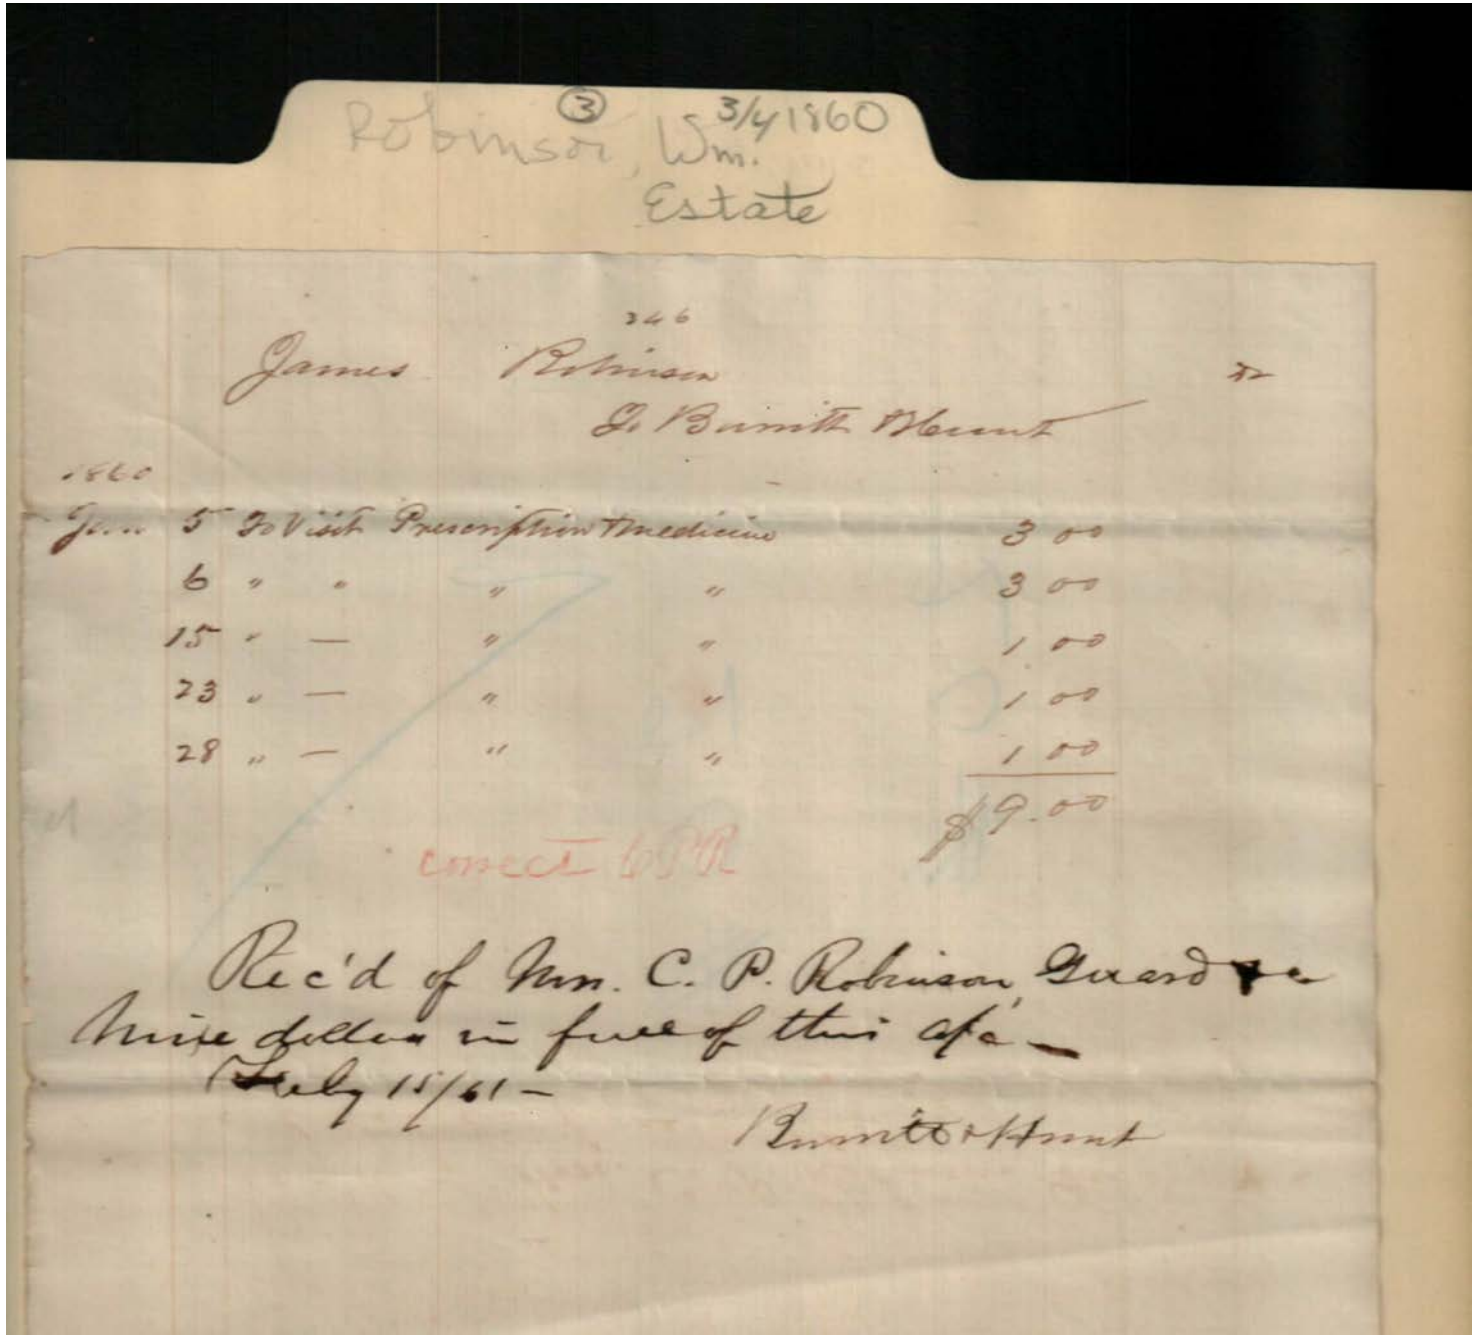 ③ 3/4 1860
Robinson, Wm.
Estate
346
James Robinson Dr
To Burritt & Hunt
1860
Jan 5 To Visit Prescription & medicine 3 00
6 " " " " 3 00
15 " — " " 1 00
23 " — " " 1 00
28 " — " " 1 00
$9.00
correct CPR
Rec'd of Mrs. C. P. Robinson, Guard &c
Nine dollars in full of this a/c —
July 15/61 —
Burritt & Hunt